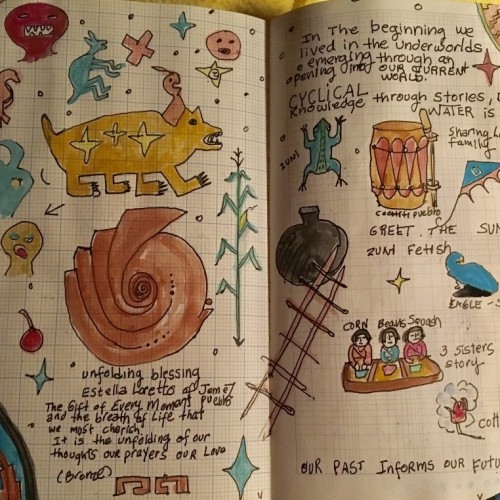 unfolding blessing
Estella Loretto of Jemez Pueblo
The Gift of Every Moment
and the breath of Life that
we most cherish
It is the unfolding of our
thoughts our prayers our Love
(Bronze)
In The beginning we
lived in the underworlds
emerging through an
opening into our CURRENT
WORLD.
CYCLICAL
Knowledge through stories,
WATER is
Sharing
family
ZUNI
Cochiti pueblo
GREET. THE SUN
ZUNI Fetish
EAGLE
CORN Beans Squash
3 sisters
story
OUR PAST INforms OUR FUTU